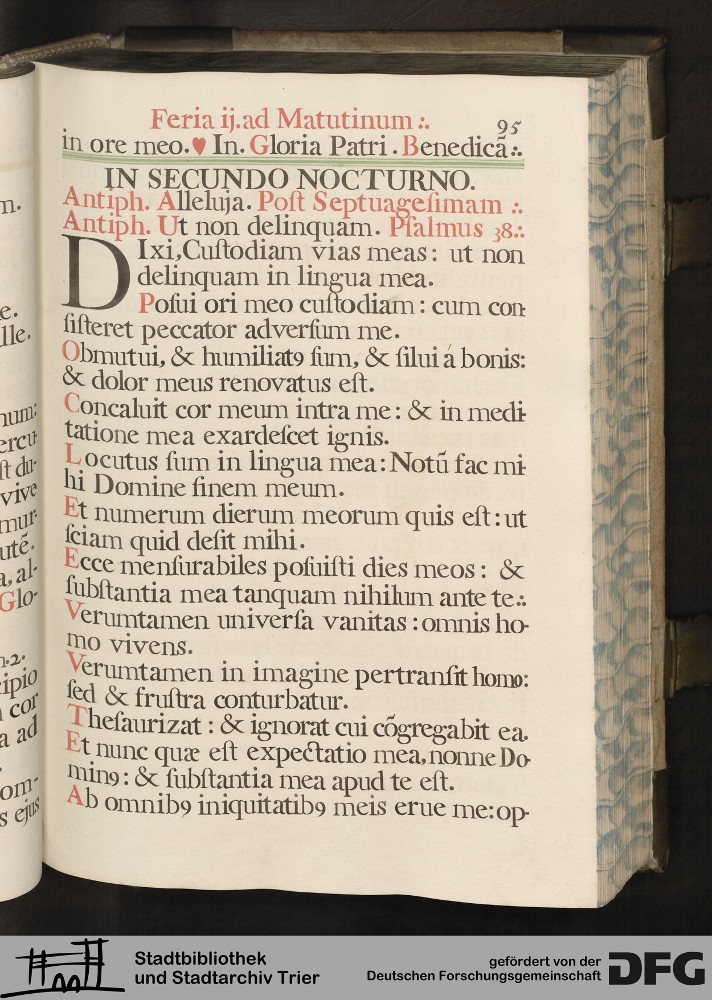 Feria ij. ad Matutinum :.
95
in ore meo. ♥ In. Gloria Patri. Benedicã:.
IN SECUNDO NOCTURNO.
Antiph. Alleluja. Poſt Septuageſimam :.
Antiph. Ut non delinquam. Pſalmus 38:.
DIxi, Cuſtodiam vias meas: ut non
delinquam in lingua mea.
Poſui ori meo cuſtodiam: cum con-
ſiſteret peccator adverſum me.
Obmutui, & humiliatꝰ ſum, & ſilui á bonis:
& dolor meus renovatus eſt.
Concaluit cor meum intra me: & in medi-
tatione mea exardeſcet ignis.
Locutus ſum in lingua mea: Notũ fac mi-
hi Domine finem meum.
Et numerum dierum meorum quis eſt: ut
ſciam quid deſit mihi.
Ecce menſurabiles poſuiſti dies meos: &
ſubſtantia mea tanquam nihilum ante te:.
Verumtamen univerſa vanitas: omnis ho-
mo vivens.
Verumtamen in imagine pertranſit homo:
ſed & fruſtra conturbatur.
Theſaurizat: & ignorat cui cõgregabit ea.
Et nunc quæ eſt expectatio mea, nonne Do-
minꝰ: & ſubſtantia mea apud te eſt.
Ab omnibꝰ iniquitatibꝰ meis erue me: op-
m.
e.
lle.
num:
ercu-
ſt du-
vive
mur-
utẽ.
a, al-
Glo-
n.2.
cipio
cor
a ad
om-
s ejus
Stadtbibliothek
und Stadtarchiv Trier
gefördert von der
Deutschen Forschungsgemeinschaft
DFG